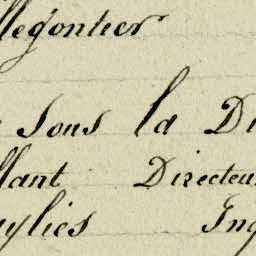 llegontier
sous la Di
llant Directeu
uylies Ing